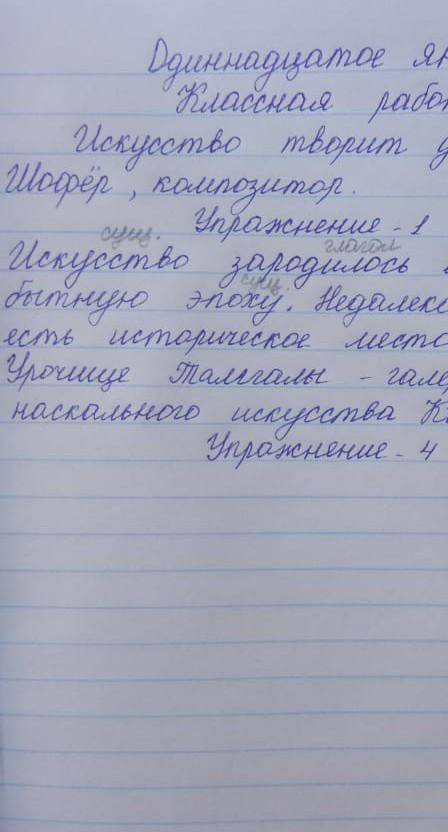 Одиннадцатое ян
Классная рабо
Искусство творит
Шофёр, композитор.
Упражнение - 1
сущ. глагол
Искусство зародилось
сущ.
бытную эпоху. Недалек
есть историческое место
Урочище Тамгалы - гале
наскального искусства К
Упражнение - 4